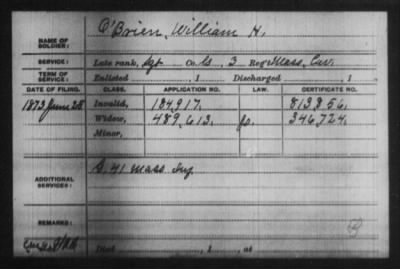 NAME OF SOLDIER: O'Brien, William H.
SERVICE: Late rank, Sgt Co. G, 3 Reg't Mass. Cav.
TERM OF SERVICE: Enlisted , 1 Discharged , 1
DATE OF FILING. CLASS. APPLICATION NO. LAW. CERTIFICATE NO.
1873 June 28 Invalid, 184,917. 813,856.
Widow, 489,613. 346,724.
Minor,
ADDITIONAL SERVICES: 41 Mass Inf.
REMARKS:
Died , 1 , at